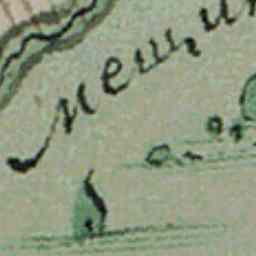 Мещи